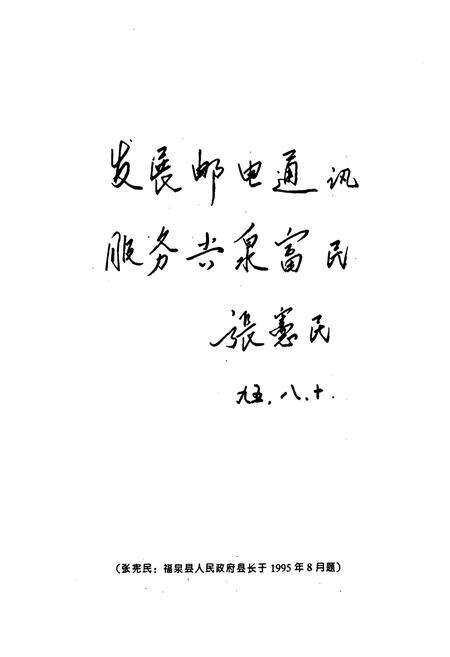 发展邮电通讯
服务兴泉富民
張憲民
九五.八.十.
(张宪民:福泉县人民政府县长于1995年8月题)